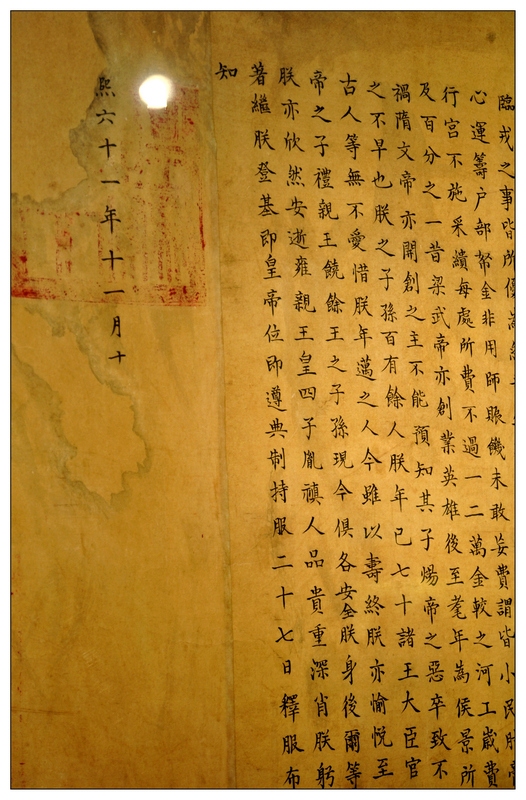 臨戎之事皆所優為
心運籌户部帑金非用師賑饑未敢妄費謂皆小民脂
行宮不施采繢每處所費不過一二萬金較之河工歲費
及百分之一昔梁武帝亦創業英雄後至耄年為侯景所
禍隋文帝亦開創之主不能預知其子煬帝之惡卒致不
之不早也朕之子孫百有餘人朕年已七十諸王大臣官
古人等無不愛惜朕年邁之人今雖以壽終朕亦愉悅至
帝之子禮親王饒餘王之子孫現今俱各安全朕身後爾等
朕亦欣然安逝雍親王皇四子胤禛人品貴重深肖朕躬
著繼朕登基即皇帝位即遵典制持服二十七日釋服布
知
熙六十一年十一月十